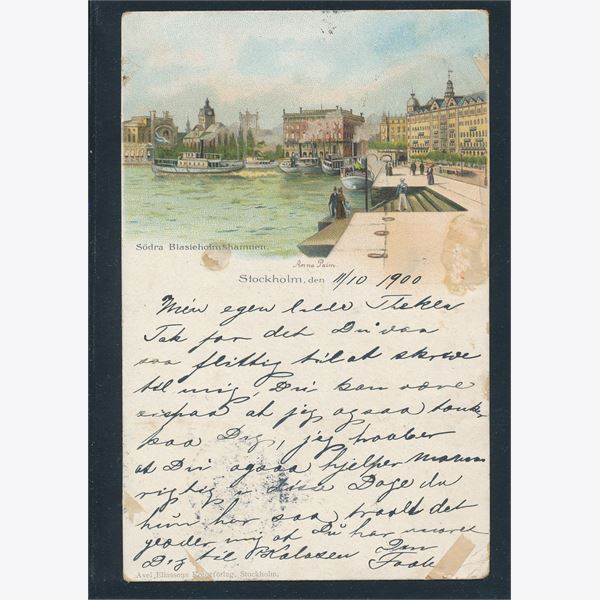 Södra Blasieholmshamnen.
Anna Palm
Stockholm, den 11/10 1900
Min egen lille Thekla
Tak for det Du var
saa flittig til at skrive
til mig, Du kan være
at jeg ogsaa tænker
paa Dig, jeg haaber
at Du ogsaa hjælper Mama
rigtig i disse Dage da
hun har saa travlt det
glæder mig at Du har moret
Dig til Kalasen Din
Axel Eliassons Konstförlag, Stockholm.